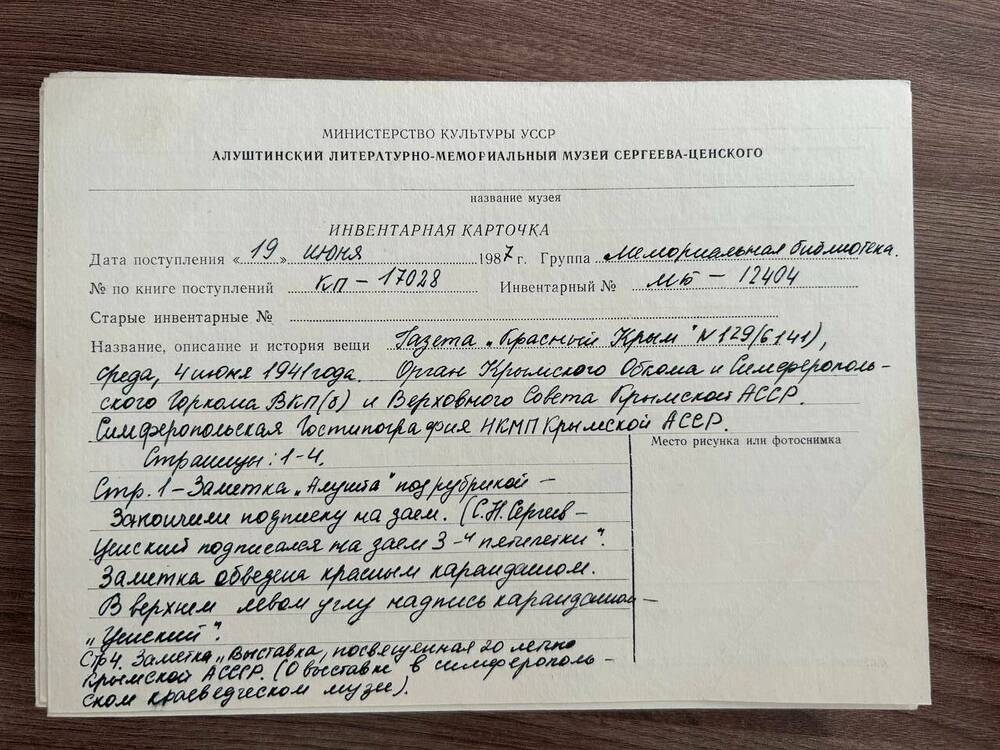 МИНИСТЕРСТВО КУЛЬТУРЫ УССР
АЛУШТИНСКИЙ ЛИТЕРАТУРНО-МЕМОРИАЛЬНЫЙ МУЗЕЙ СЕРГЕЕВА-ЦЕНСКОГО
название музея
ИНВЕНТАРНАЯ КАРТОЧКА
Дата поступления «19» июня 1987 г. Группа Мемориальная библиотека.
№ по книге поступлений КП – 17028 Инвентарный № МБ – 12404
Старые инвентарные №
Название, описание и история вещи Газета „Красный Крым" N 129/6141),
среда, 4 июня 1941 года. Орган Крымского Обкома и Симферополь-
ского Горкома ВКП(б) и Верховного Совета Крымской АССР.
Симферопольская Гостипография НКМП Крымской АССР.
Место рисунка или фотоснимка
Страницы: 1-4.
Стр. 1 – Заметка „Алушта" под рубрикой –
Закончили подписку на заем. (С.Н. Сергеев-
Ценский подписался на заем 3-й пятилетки".
Заметка обведена красным карандашом.
В верхнем левом углу надпись карандашом –
„Ценский".
Стр 4. Заметка „Выставка, посвещенная 20 летию
Крымской АССР. (О выставке в симферополь-
ском краеведческом музее).